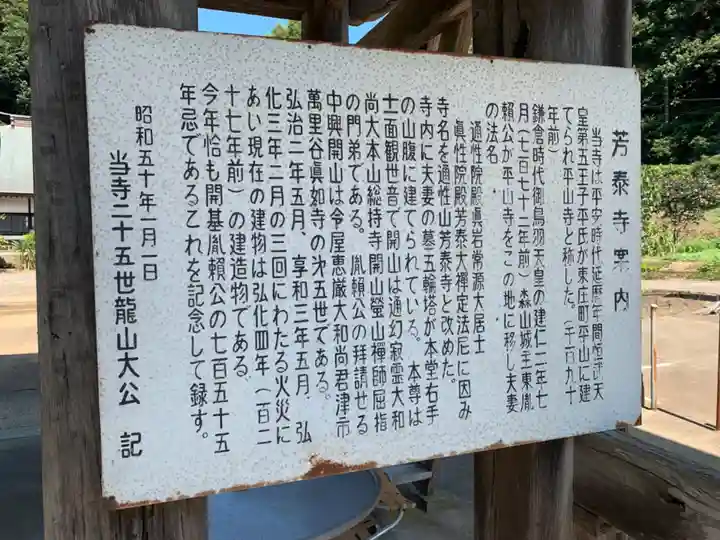 芳泰寺案内
当寺は平安時代延暦年間恒武天
皇第五王子平氏が東庄町平山に建
てられ平山寺と称した。(千百九十
年前)
鎌倉時代御鳥羽天皇の建仁二年七
月(七百七十二年前)森山城主東胤
頼公が平山寺をこの地に移し夫妻
の法名
通性院殿眞岩常源大居士
眞性院殿芳泰大禪定法尼に因み
寺名を通性山芳泰寺と改めた。
寺内に夫妻の墓五輪塔が本堂右手
の山腹に建てられている。本尊は
十一面観世音で開山は通幻寂霊大和
尚大本山総持寺開山瑩山禪師屈指
の門弟である。胤頼公の拜請せる
中興開山は令屋恵厳大和尚君津市
萬里谷眞如寺の㐧五世である。
弘治二年五月、享和三年五月、弘
化三年二月の三回にわたる火災に
あい現在の建物は弘化四年(百二
十七年前)の建造物である。
今年恰も開基胤頼公の七百五十五
年忌であるこれを記念して録す。
昭和五十年一月一日
当寺二十五世龍山大公 記